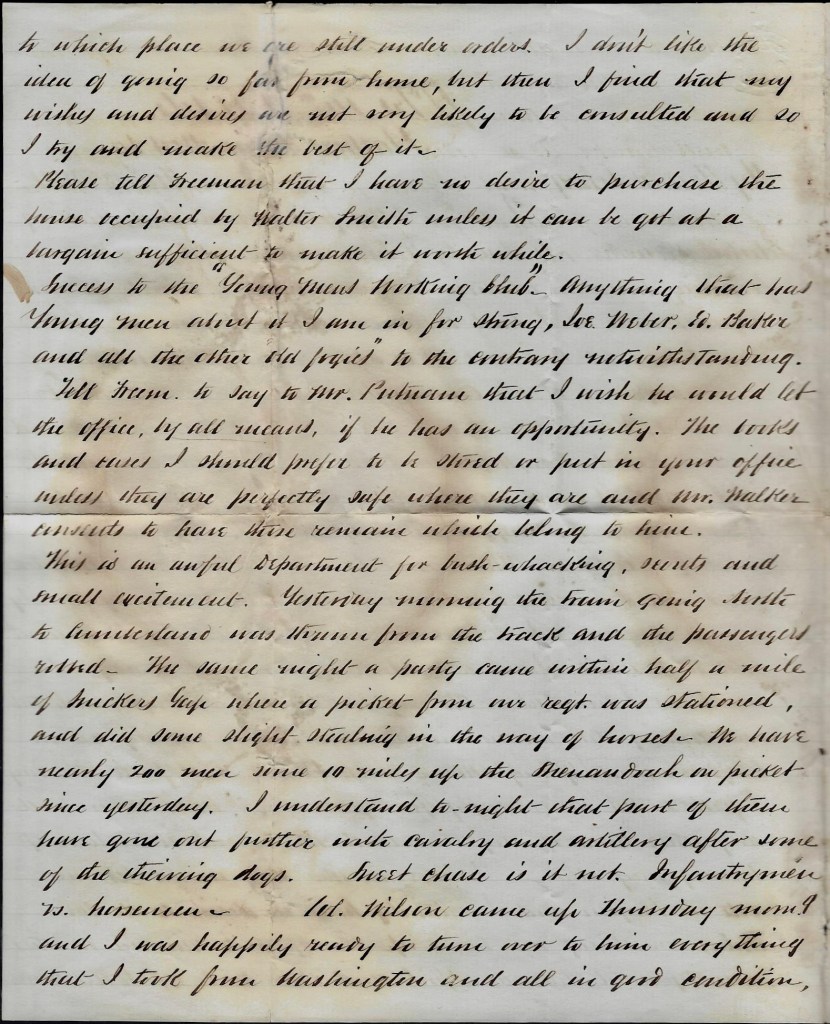 to which place we are still under orders. I don't like the
idea of going so far from home, but then I find that my
wishes and desires are not very likely to be consulted and so
I try and make the best of it.
Please tell Freeman that I have no desire to purchase the
house occupied by Walter Smith unless it can be got at a
bargain sufficient to make it worth while.
Success to the "Young Mens Working Club". Anything that has
Young men about it I am in for strong, Joe Weber, Ed. Baker
and all the other "old fogies" to the contrary notwithstanding.
Tell Freem. to say to Mr. Putnam that I wish he would let
the office, by all means, if he has an opportunity. The books
and cases I should prefer to be stored or put in your office
unless they are perfectly safe where they are and Mr. Walker
consents to have those remain which belong to him.
This is an awful Department for bush-whacking, scouts and
small excitement. Yesterday morning the train going North
to Cumberland was thrown from the track and the passengers
robbed – The same night a party came within half a mile
of Snickers Gap where a picket from our regt. was stationed,
and did some slight stealing in the way of horses – We have
nearly 200 men some 10 miles up the Shenandoah on picket
since yesterday. I understand to-night that part of them
have gone out further with cavalry and artillery after some
of the theiving dogs. Sweet chase is it not. Infantrymen
vs. horsemen – Col. Wilson came up Thursday morng
and I was happily ready to turn over to him everything
that I took from Washington and all in good condition,